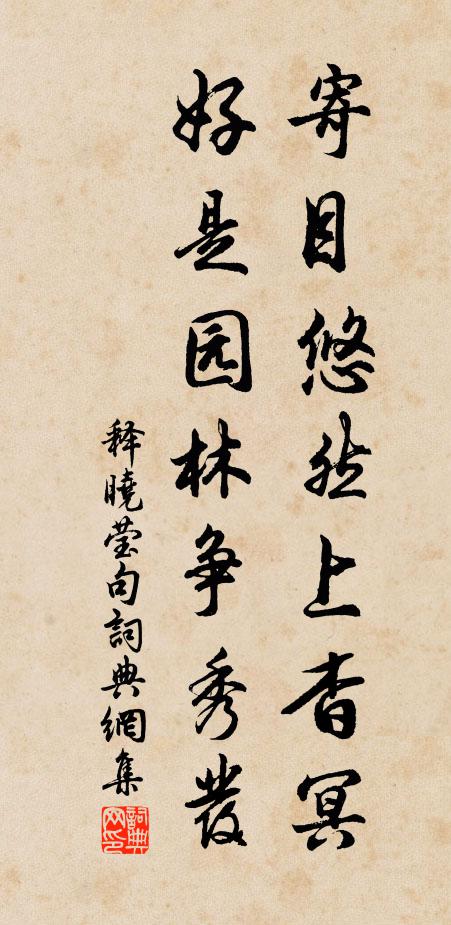 寄目悠然上杳冥
好是园林争秀發
释曉莹句詞典網集
詞典网印